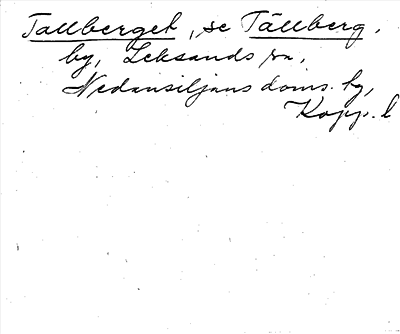 Tallberget, se Tällberg,
by, Leksands sn,
Nedansiljans doms. hg,
Kopp. l